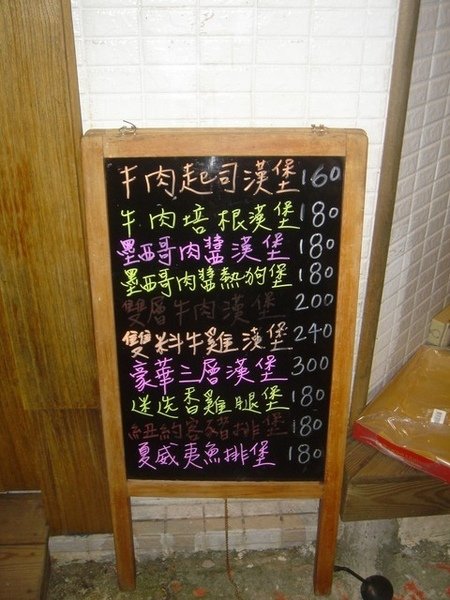 牛肉起司漢堡160
牛肉培根漢堡180
墨西哥肉醬漢堡180
墨西哥肉醬熱狗堡180
雙層牛肉漢堡200
雙料牛雞漢堡240
豪華三層漢堡300
迷迭香雞腿堡180
紐約客豬排堡180
夏威夷魚排堡180